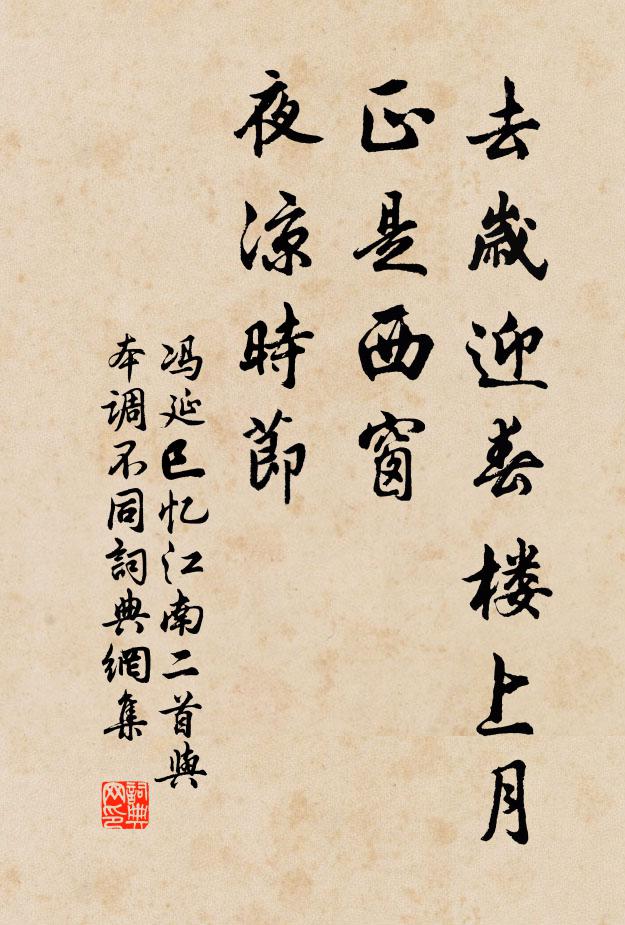 去歳迎春楼上月
正是西窗
夜凉時節
冯延巳忆江南二首與
本调不同詞典網集
詞典网印